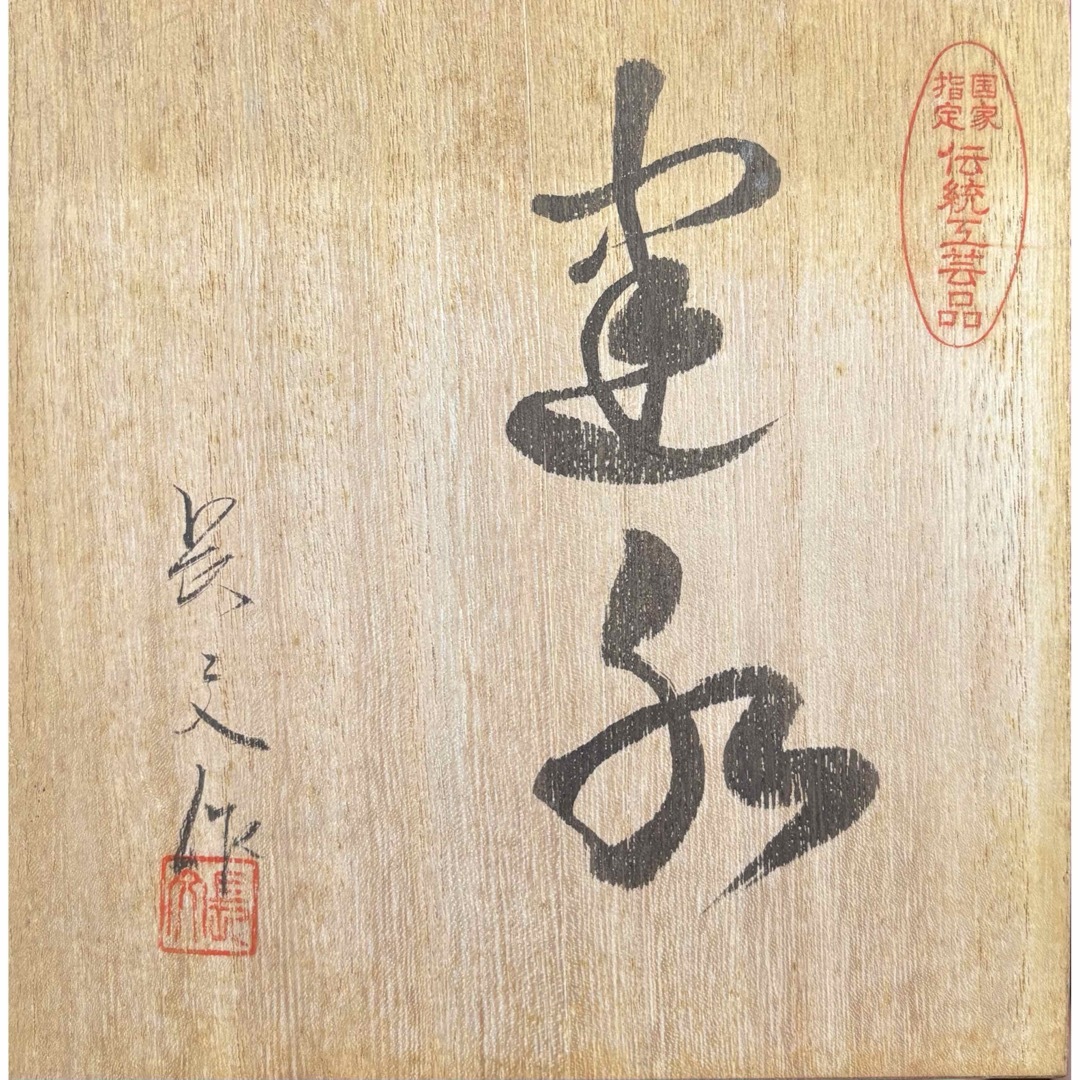 国家
指定
伝統工芸品
建水
長文作
長文